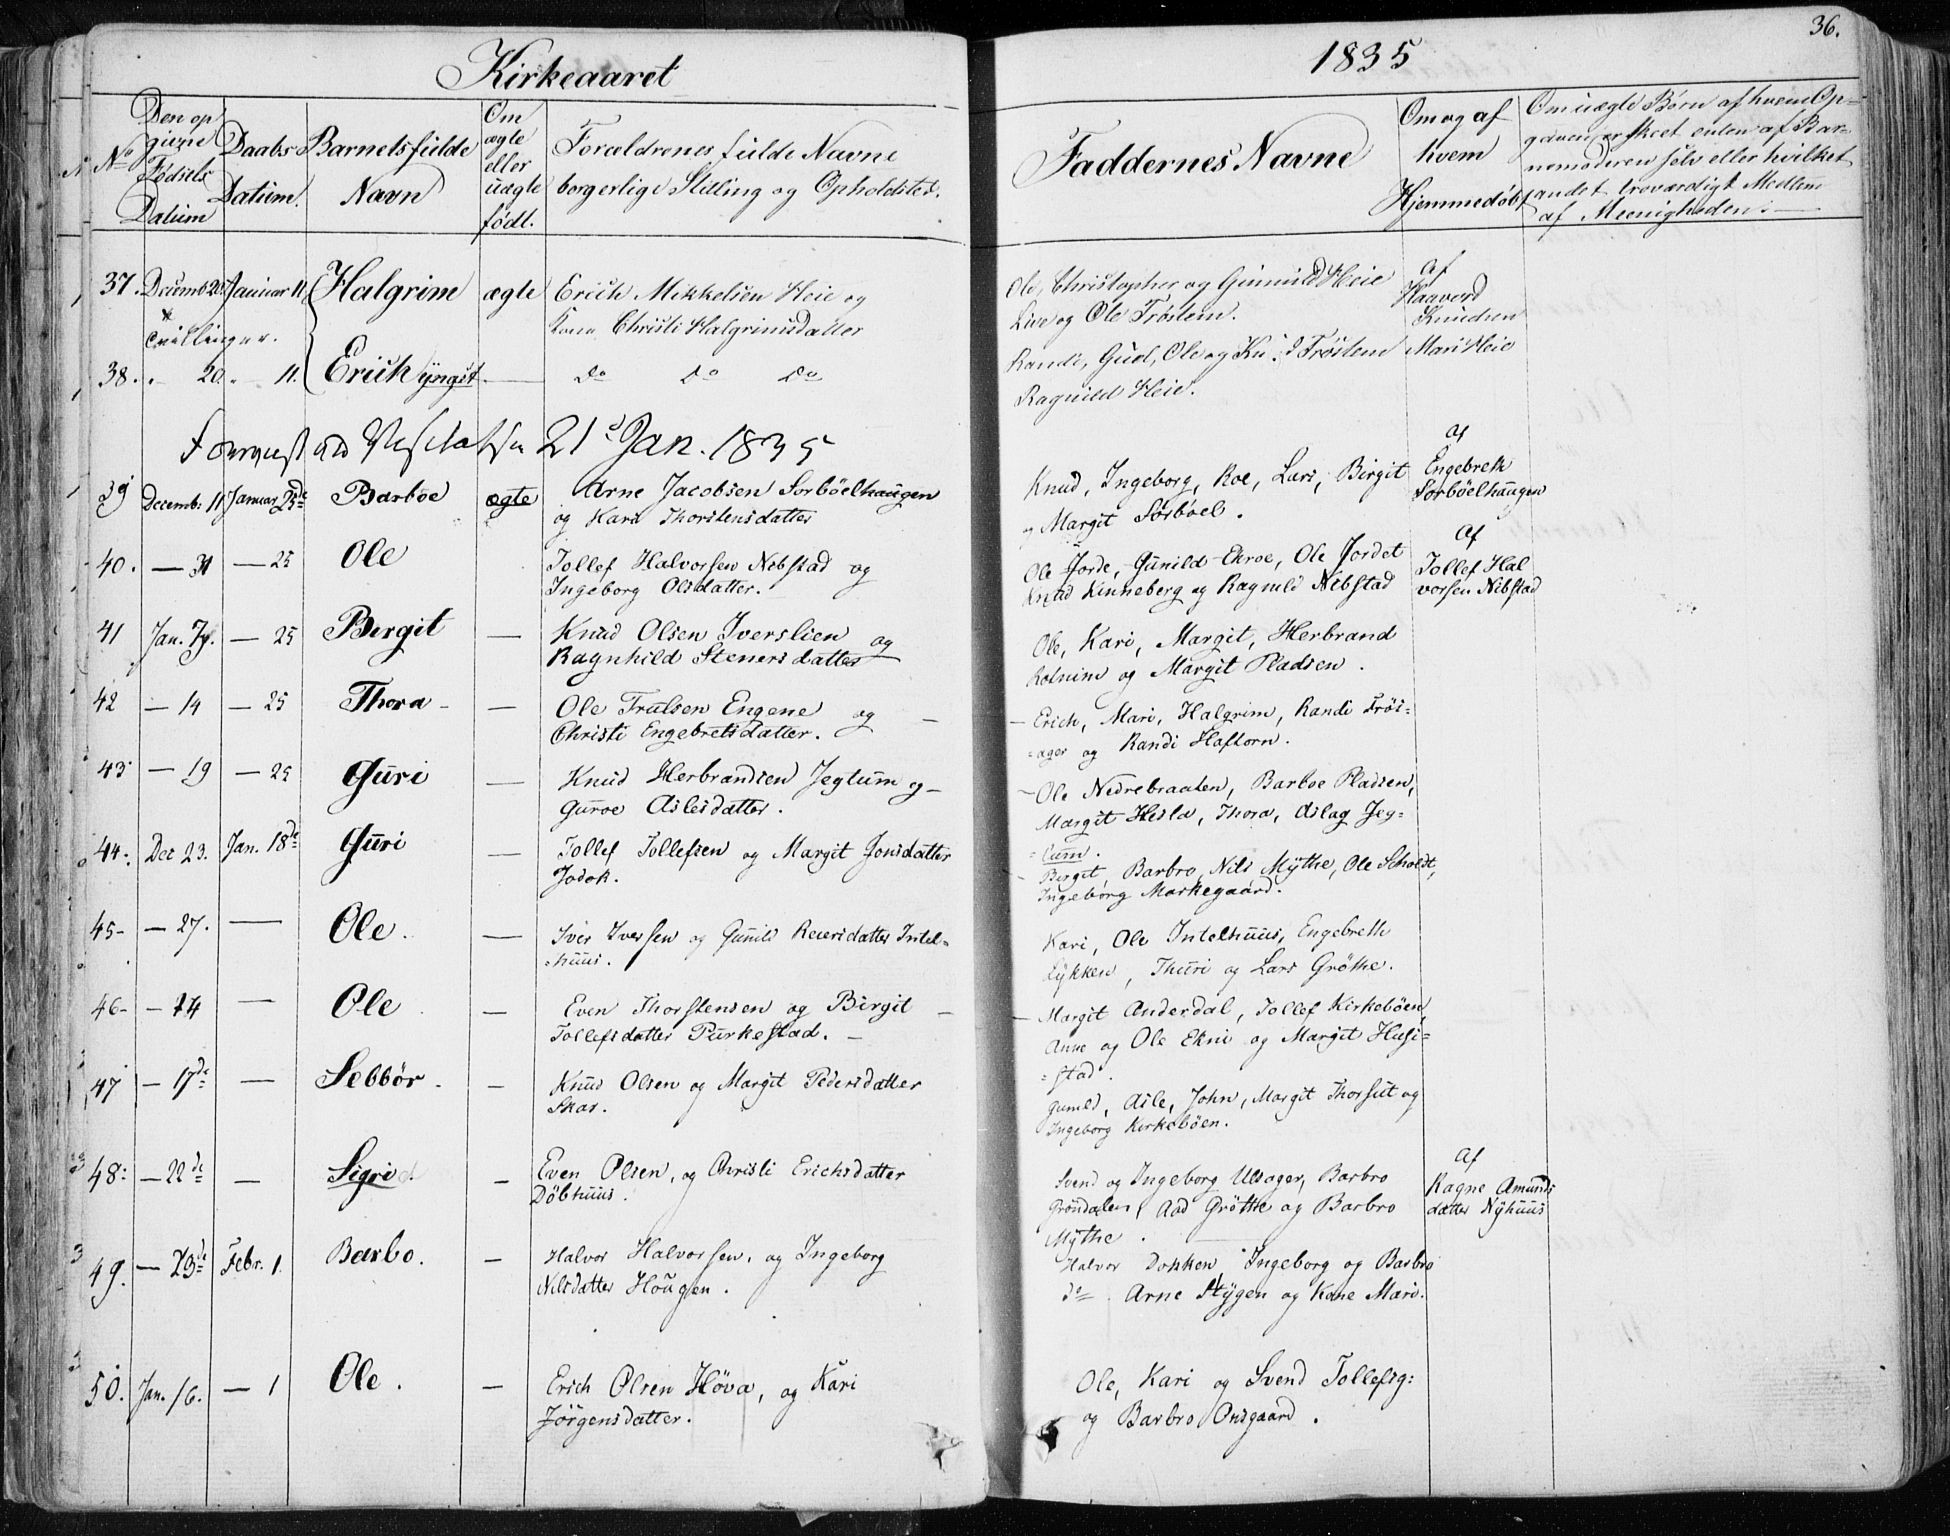 Kirkeaaret
No
Den op
givne
Fødsels
Datum
Daabs
Datum.
Barnets fulde
Navn
Om
ægte
eller
uægte
født.
Forældrenes fulde Navne
borgerlige Stilling og Opholdsted.
37. Decemb 20. Januar 11. Halgrim ægte Erich Mikkelsen Heie og
Kone Christi Halgrimsdatter
Tvillinger.
38. " 20. " 11. Erich yngst — Do Do Do
21d Jan. 1835
39 Decemb. 11 Januar 25de Barboe ægte Arne Jacobsen Sorböelhaugen
og Kari Thorstensdatter
40. — 31 — 25 Ole Tollef Halvorsen Nibstad og
Ingeborg Olsdatter.
41 Jan. 7. — 25 Bergit — Knud Olsen Iverslien og
Ragnhild Stenersdatter
42 — 14 — 25 Thora — Ole Trulsen Engene og —
Christi Engebretsdatter.
43 — 19 — 25 Guri — Knud Herbrandsen Jegtum og —
Guroe Aslesdatter.
44. Dec 23. Jan. 18de Guri — Tollef Tollefsen og Margit Jonsdatter
Jodok.
45 — 27. — Ole. — Iver Iversen og Gunild Reiersdatter Intel=
=huus.
46 — 14 — Ole — Even Thorstensen og Birgit —
Tollefsdatter Purkestad. —
47 — 17de — Sebbör — Knud Olsen og Margit Pedersdatter
Skar.
48: — 22de — Sigrid — Even Olsen, og Christi Erichsdatter
Döbhuus.
49. — 23de Febr. 1. Barbo. — Halvor Halvorsen, og Ingeborg
Nilsdatter Hougen.
50. Jan. 16. — 1 Ole. — Erich Olsen Höva, og Kari
Jörgensdatter.
36.
1835
Faddernes Navne
Om og af
hvem
Hjemmedøbt
Om uægte Børn af hvem Op=
gaven er skeet enten af Bar=
nemoderen selv eller hvilket
andet troværdigt Medlem
af Meenigheden. —
Ole, Christopher og Gunnild Heie
Live og Ole Tröstem.
Randi, Gud, Ole og Knud Tröstem
Ragnild Heie.
Af
Haavord
Knudsen
Mari Heie
Knud, Ingeborg, Roe, Lars, Birgit
og Margit Sorböel.
Af
Engebreth
Sorböelhaugen
Ole Jorde, Gunild Ekroe, Ole Jordet
Knud Kinneberg og Ragnild Nibstad
Af
Tollef Hal
vorsen Nibstad
Ole, Kari, Margit, Herbrand
Rotnim og Margit Pladsen.
— Erich, Mari, Halgrim, Randi Fröi=
=ager og Randi Haftorn.
— Ole Nedrebraaten, Barboe Pladsen,
Margit Hesla, Thora, Aslag Jeg=
=tum.
Birgit, Barbro, Nils Mythe, Ole Scholdt,
Ingeborg Markegaard.
Kari, Ole Intelhuus, Engebreth
Lykken, Thuri og Lars Gröthe.
— Margit Andersdal, Tollef Kirkeböen,
Anne og Ole Ekni og Margit Husi=
=stad.
Gunild, Asle, John, Margit Thorset og
Ingeborg Kirkeböen.
Svend og Ingeborg Ulsager, Barbro
Gröndalen, Aad Gröthe og Barbro
Mythe.
Af
Ragne Amunds
datter Nyhuus
Halvor Dokken, Ingeborg og Barbro
do Arne Stygen og Kone Mari.
Ole, Kari og Svend Tollefsg:
og Barbro Onsgaard.